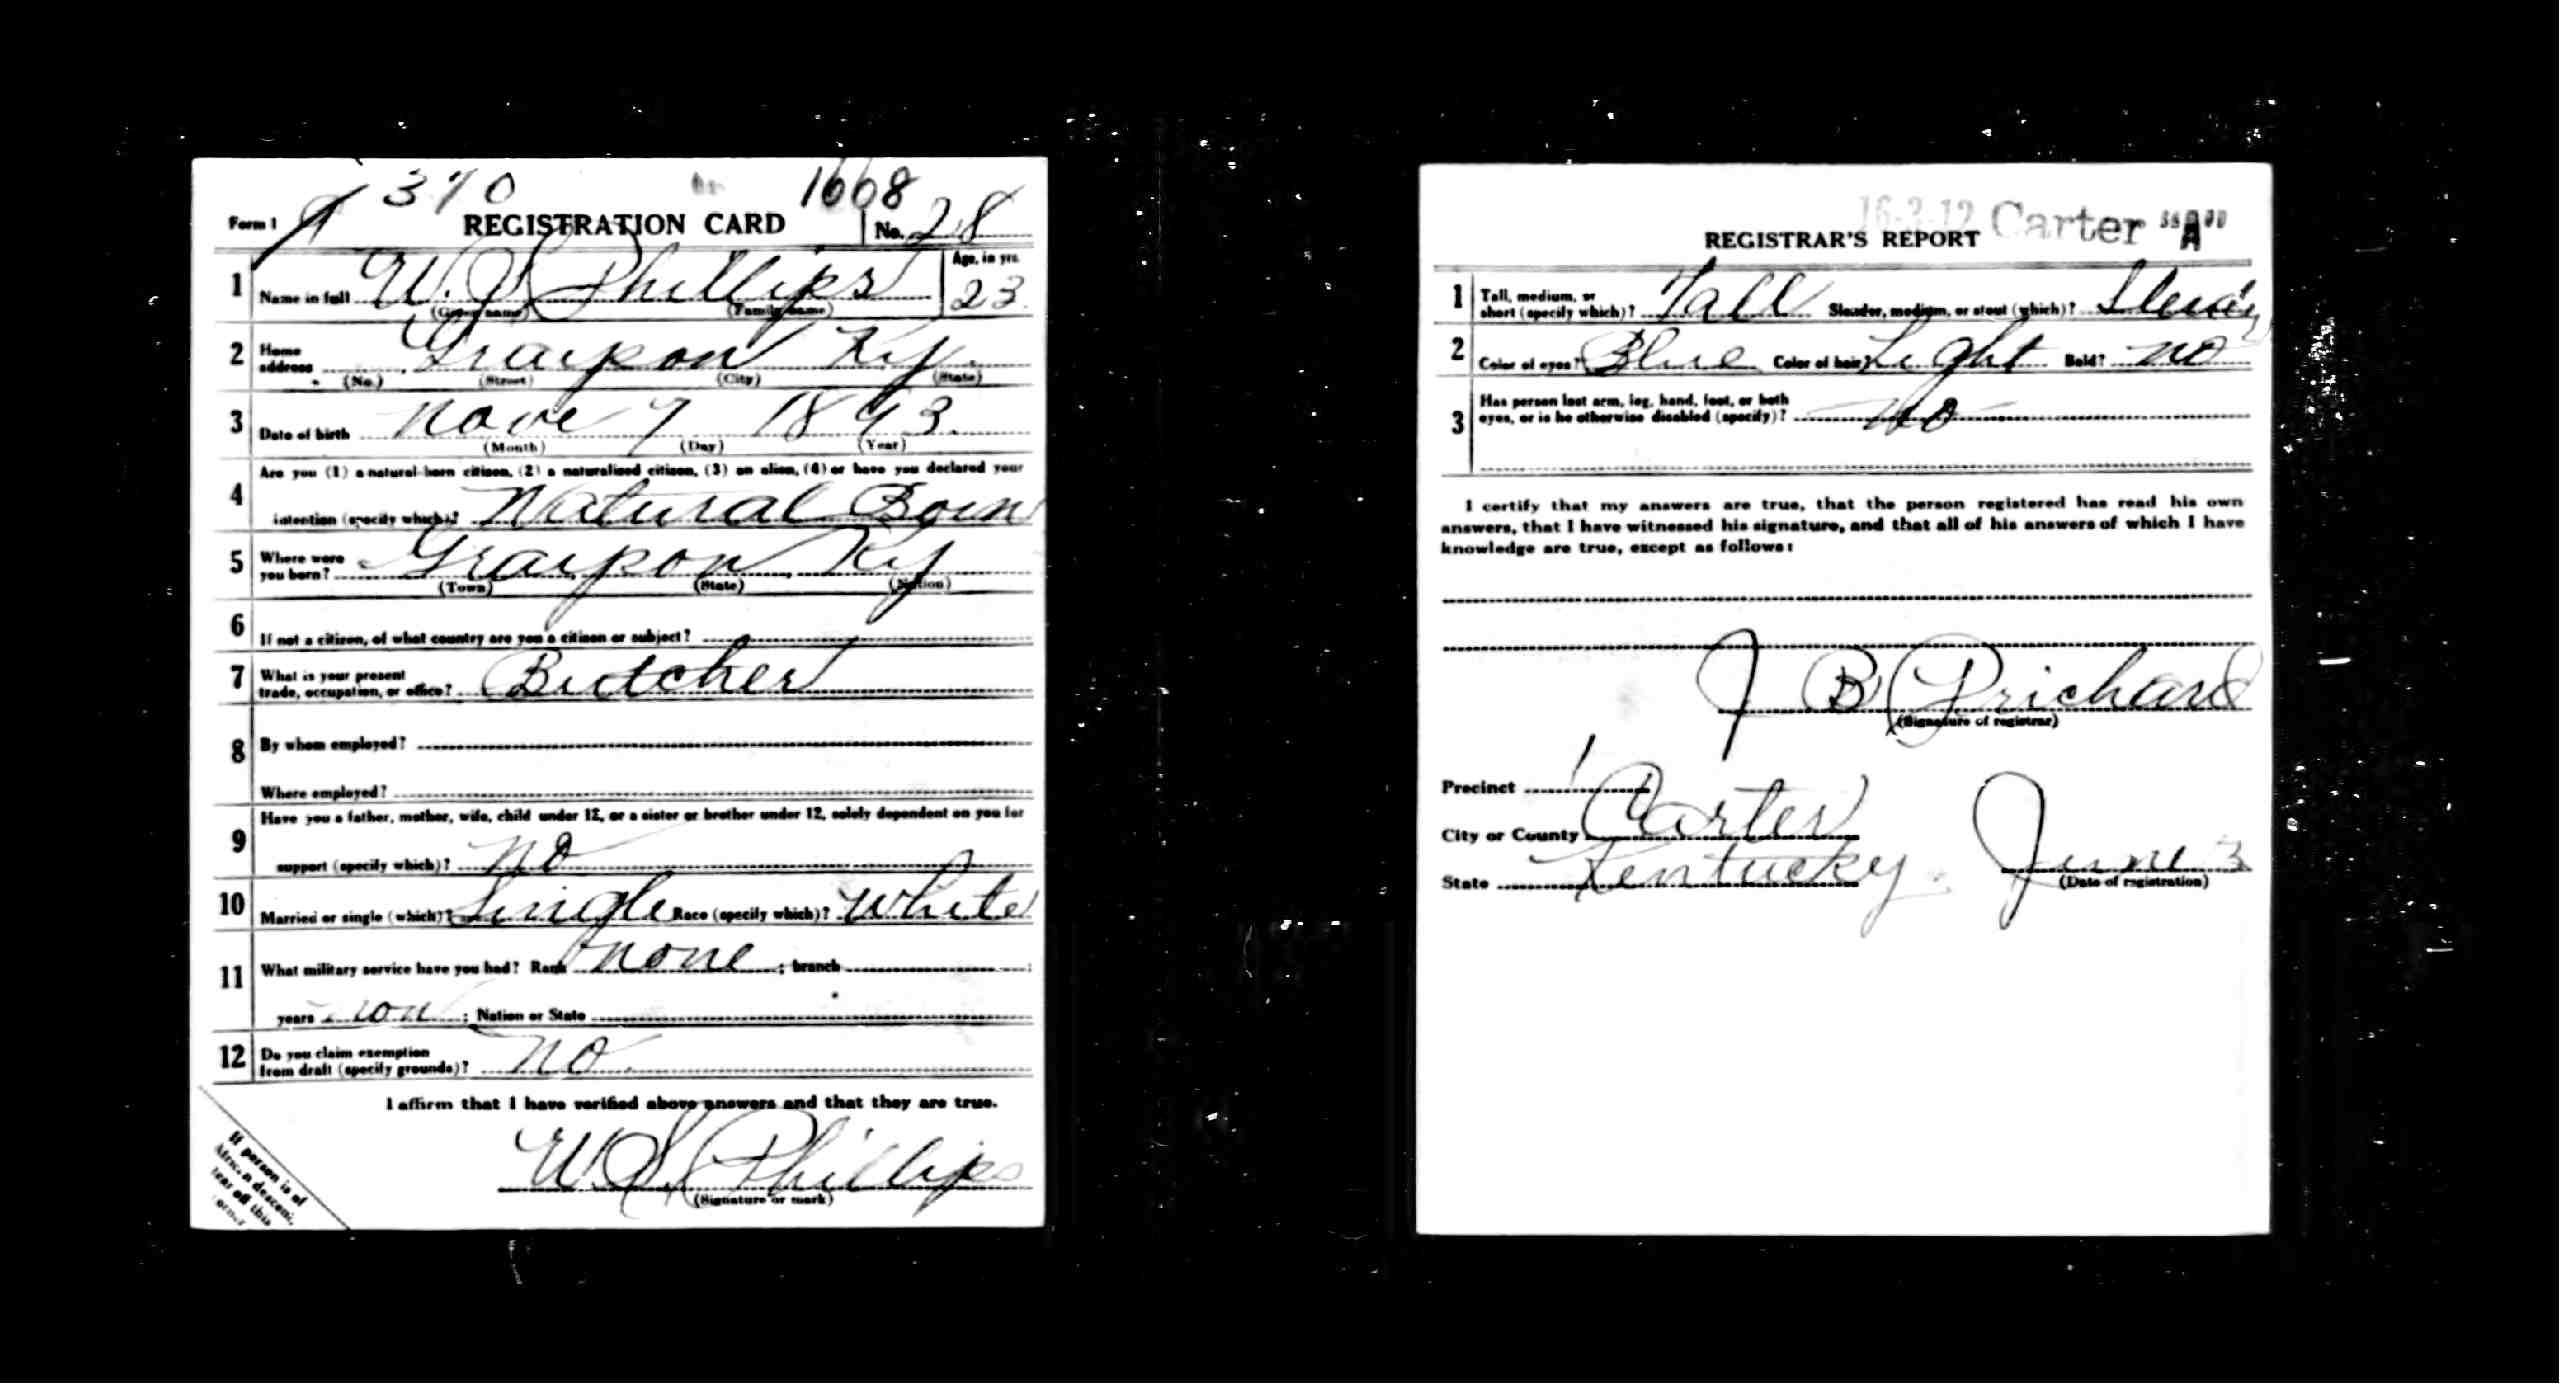 370 1668
Form 1 REGISTRATION CARD No. 28
1 Name in full W. S. Phillips Age, in yrs. 23
(Given name) (Family name)
2 Home address Grayson Ky.
(No.) (Street) (City) (State)
3 Date of birth Nove 7 1893.
(Month) (Day) (Year)
4 Are you (1) a natural-born citizen, (2) a naturalized citizen, (3) an alien, (4) or have you declared your
intention (specify which)? Natural Born
5 Where were you born? Grayson Ky
(Town) (State) (Nation)
6 If not a citizen, of what country are you a citizen or subject?
7 What is your present
trade, occupation, or office? Butcher
8 By whom employed?
Where employed?
9 Have you a father, mother, wife, child under 12, or a sister or brother under 12, solely dependent on you for
support (specify which)? No
10 Married or single (which)? Single Race (specify which)? White
11 What military service have you had? Rank none ; branch ;
years ; Nation or State
12 Do you claim exemption
from draft (specify grounds)? No.
I affirm that I have verified above answers and that they are true.
W. S. Phillips
(Signature or mark)
If person is of
African descent,
tear off this
corner
16-3-12 Carter "A"
REGISTRAR'S REPORT
1 Tall, medium, or
short (specify which)? Tall Slender, medium, or stout (which)?
2 Color of eyes? Blue Color of hair? Light Bald? No
3 Has person lost arm, leg, hand, foot, or both
eyes, or is he otherwise disabled (specify)? No
I certify that my answers are true, that the person registered has read his own
answers, that I have witnessed his signature, and that all of his answers of which I have
knowledge are true, except as follows:
J B Prichard
(Signature of registrar)
Precinct 1
City or County Carter
State Kentucky June
(Date of registration)